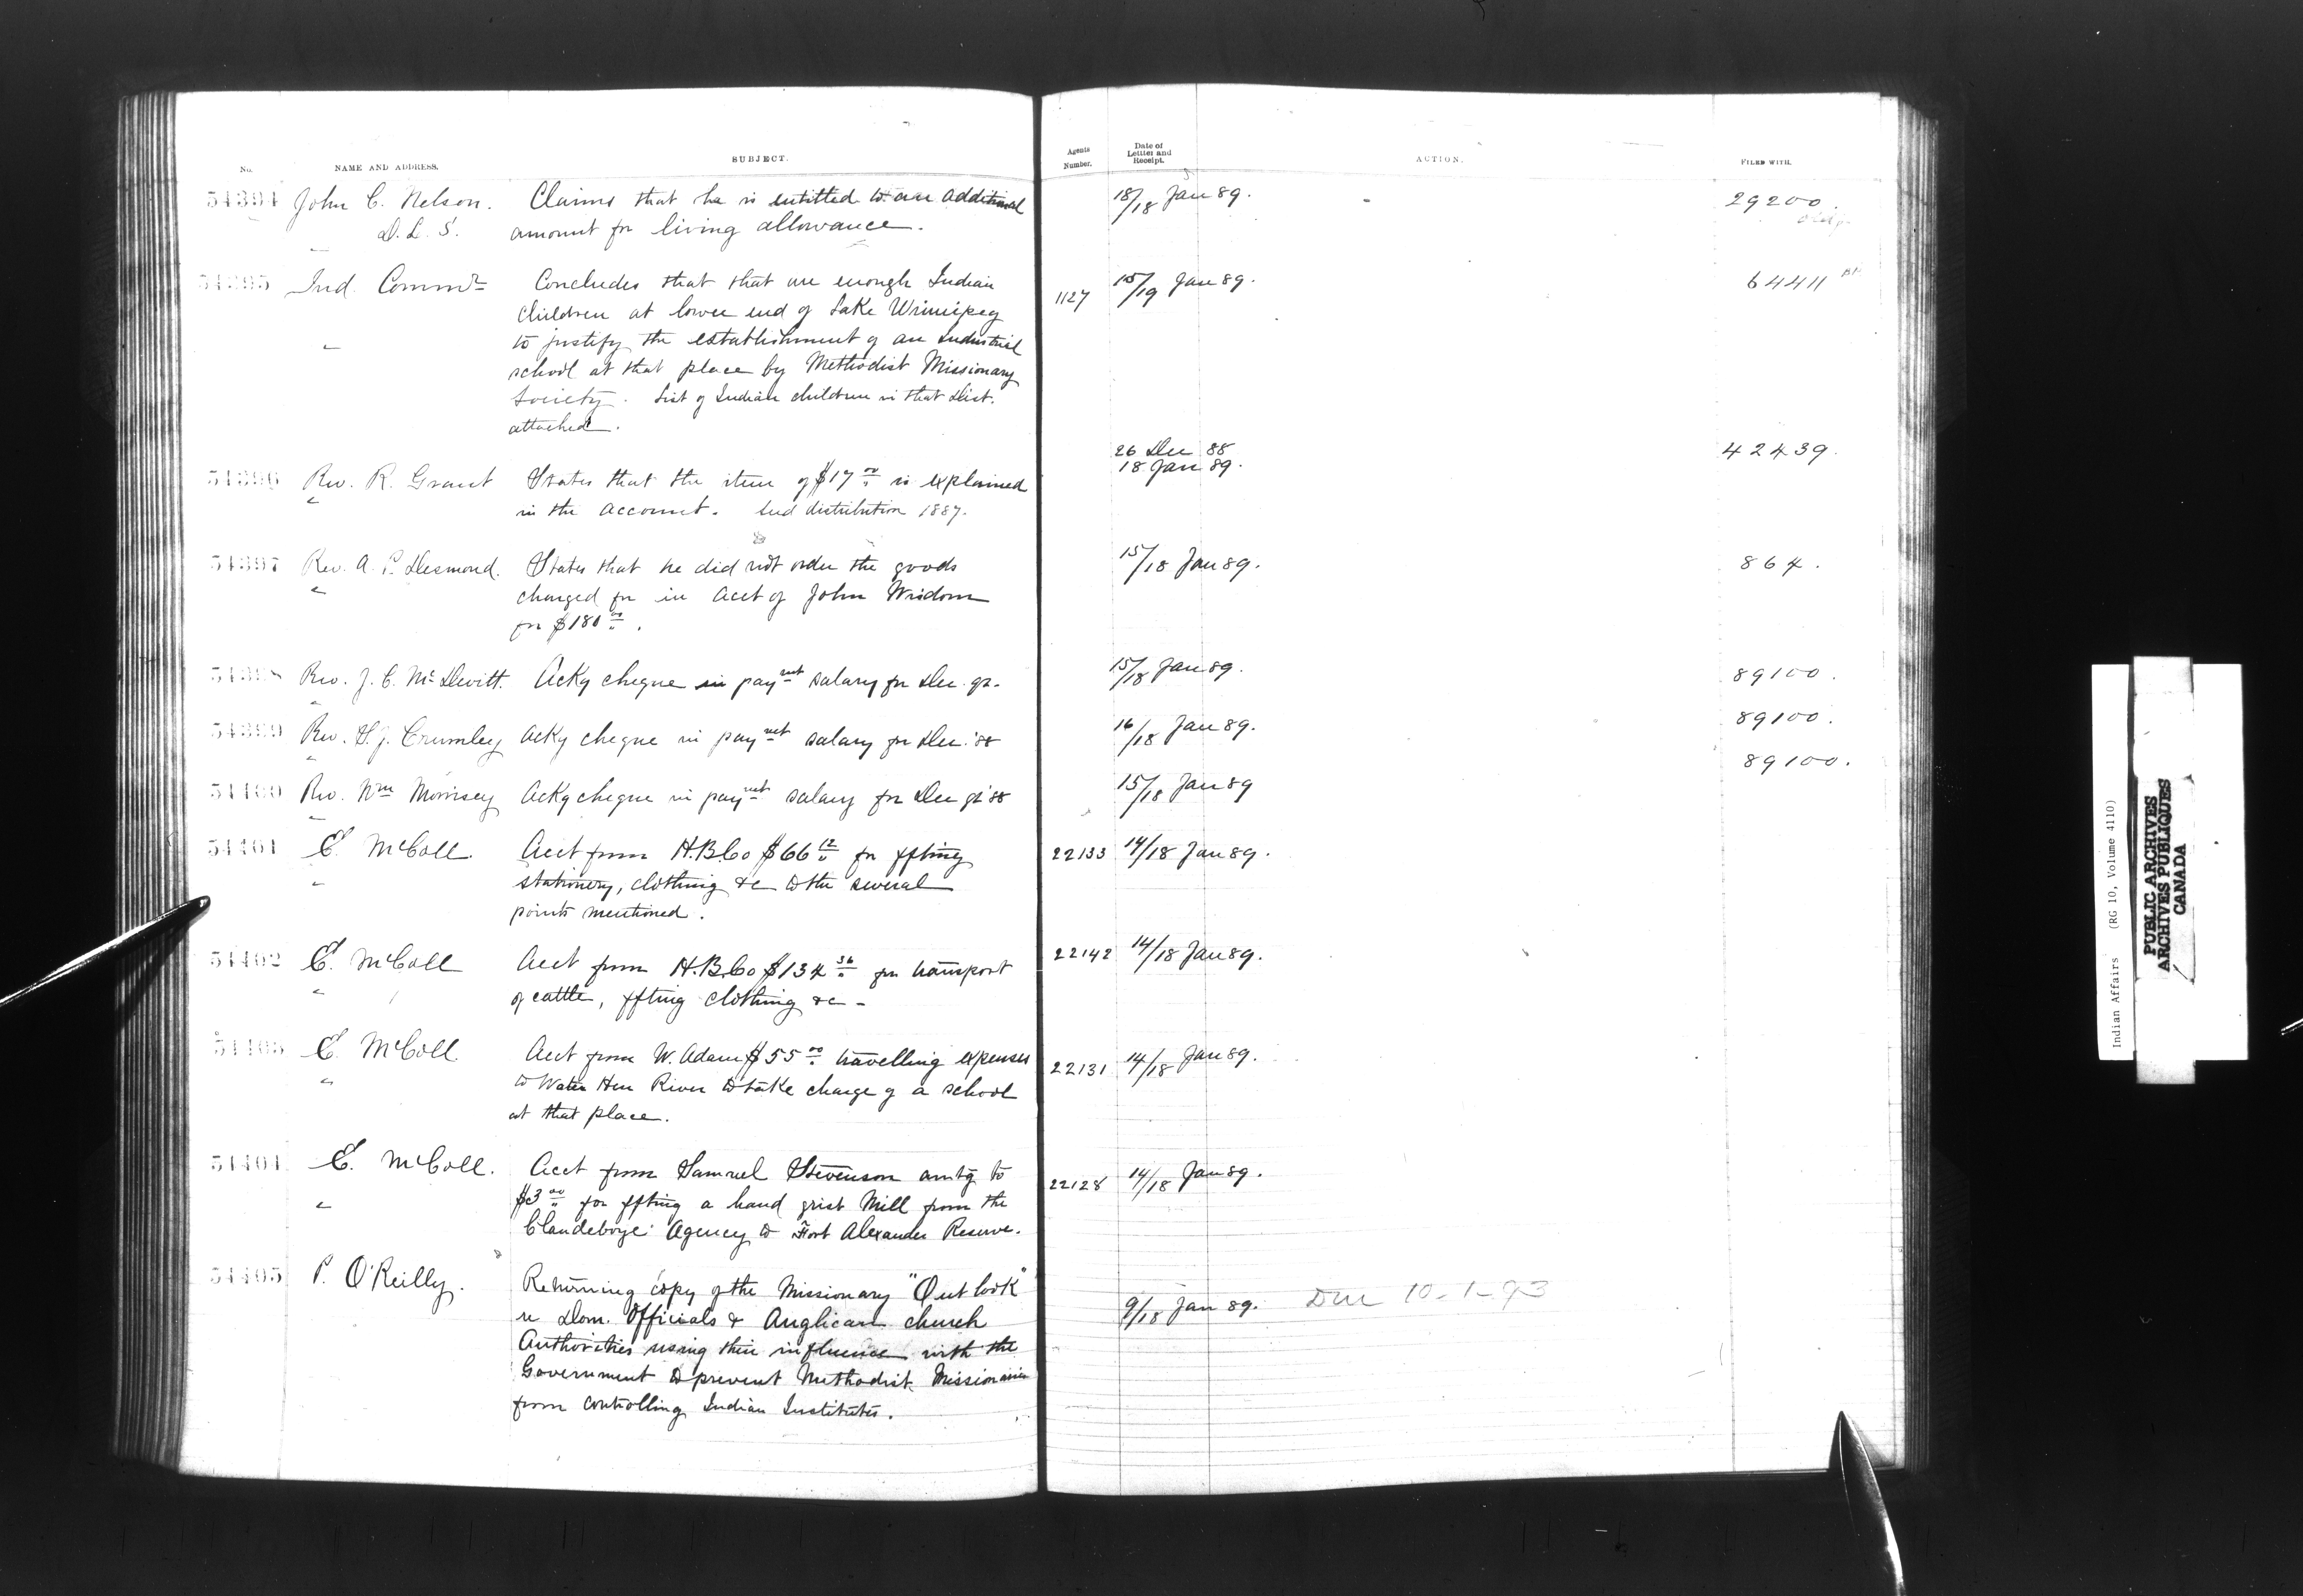 No.
NAME AND ADDRESS.
SUBJECT.
Agents Number.
Date of Letter and Receipt.
ACTION.
FILED WITH.
54394 John C. Nelson. Claims that he is entitled to an additional 18/18 Jan 89. 29200.
D. L. S. amount for living allowance.
54395 Ind. Commr Concludes that that are enough Indian 1127 15/19 Jan 89. 64411
children at lower end of Lake Winnipeg
to justify the establishment of an Industrial
school at that place by Methodist Missionary
Society. List of Indian children in that Dist.
attached.
26 Dec 88 42439.
18 Jan 89.
54396 Rev. R. Grant States that the item of $17 00 is explained
in the account. distribution 1887.
54397 Rev. A. P. Desmond. States that he did not order the goods 15/18 Jan 89. 864.
charged for in Acct of John Wisdom
for $180 00.
54398 Rev. J. C. McDevitt. Ackg cheque in paymt salary for Dec. qr. 15/18 Jan 89. 89100.
54399 Rev. H. J. Crumley Ackg cheque in paymt salary for Dec. '88 16/18 Jan 89. 89100.
54400 Rev. Wm Morrisey Ackg cheque in paymt salary for Dec qr '88 15/18 Jan 89 89100.
54401 E. McColl. Acct from H.B.Co $66 12 for ffting 22133 14/18 Jan 89.
stationery, clothing &c to the several
points mentioned.
54402 E. McColl Acct from H.B.Co $134 36 for transport 22142 14/18 Jan 89.
of cattle, ffting clothing &c -
54403 E. McColl Acct from W. Adam $55 00 travelling expenses 22131 14/18 Jan 89.
to Water Hen River to take charge of a school
at that place.
54404 E. McColl. Acct from Samuel Stevenson amtg to 22128 14/18 Jan 89.
$3 00 for ffting a hand grist Mill from the
Clandeboye Agency to Fort Alexander Reserve.
54405 P. O'Reilly. Returning copy of the Missionary "Outlook" 9/18 Jan 89. 10-1-93
re Dom. Officials & Anglican church
Authorities using their influence with the
Government to prevent Methodist Missionaries
from controlling Indian Institutes.
Indian Affairs (RG 10, Volume 4110)
PUBLIC ARCHIVES
ARCHIVES PUBLIQUES
CANADA